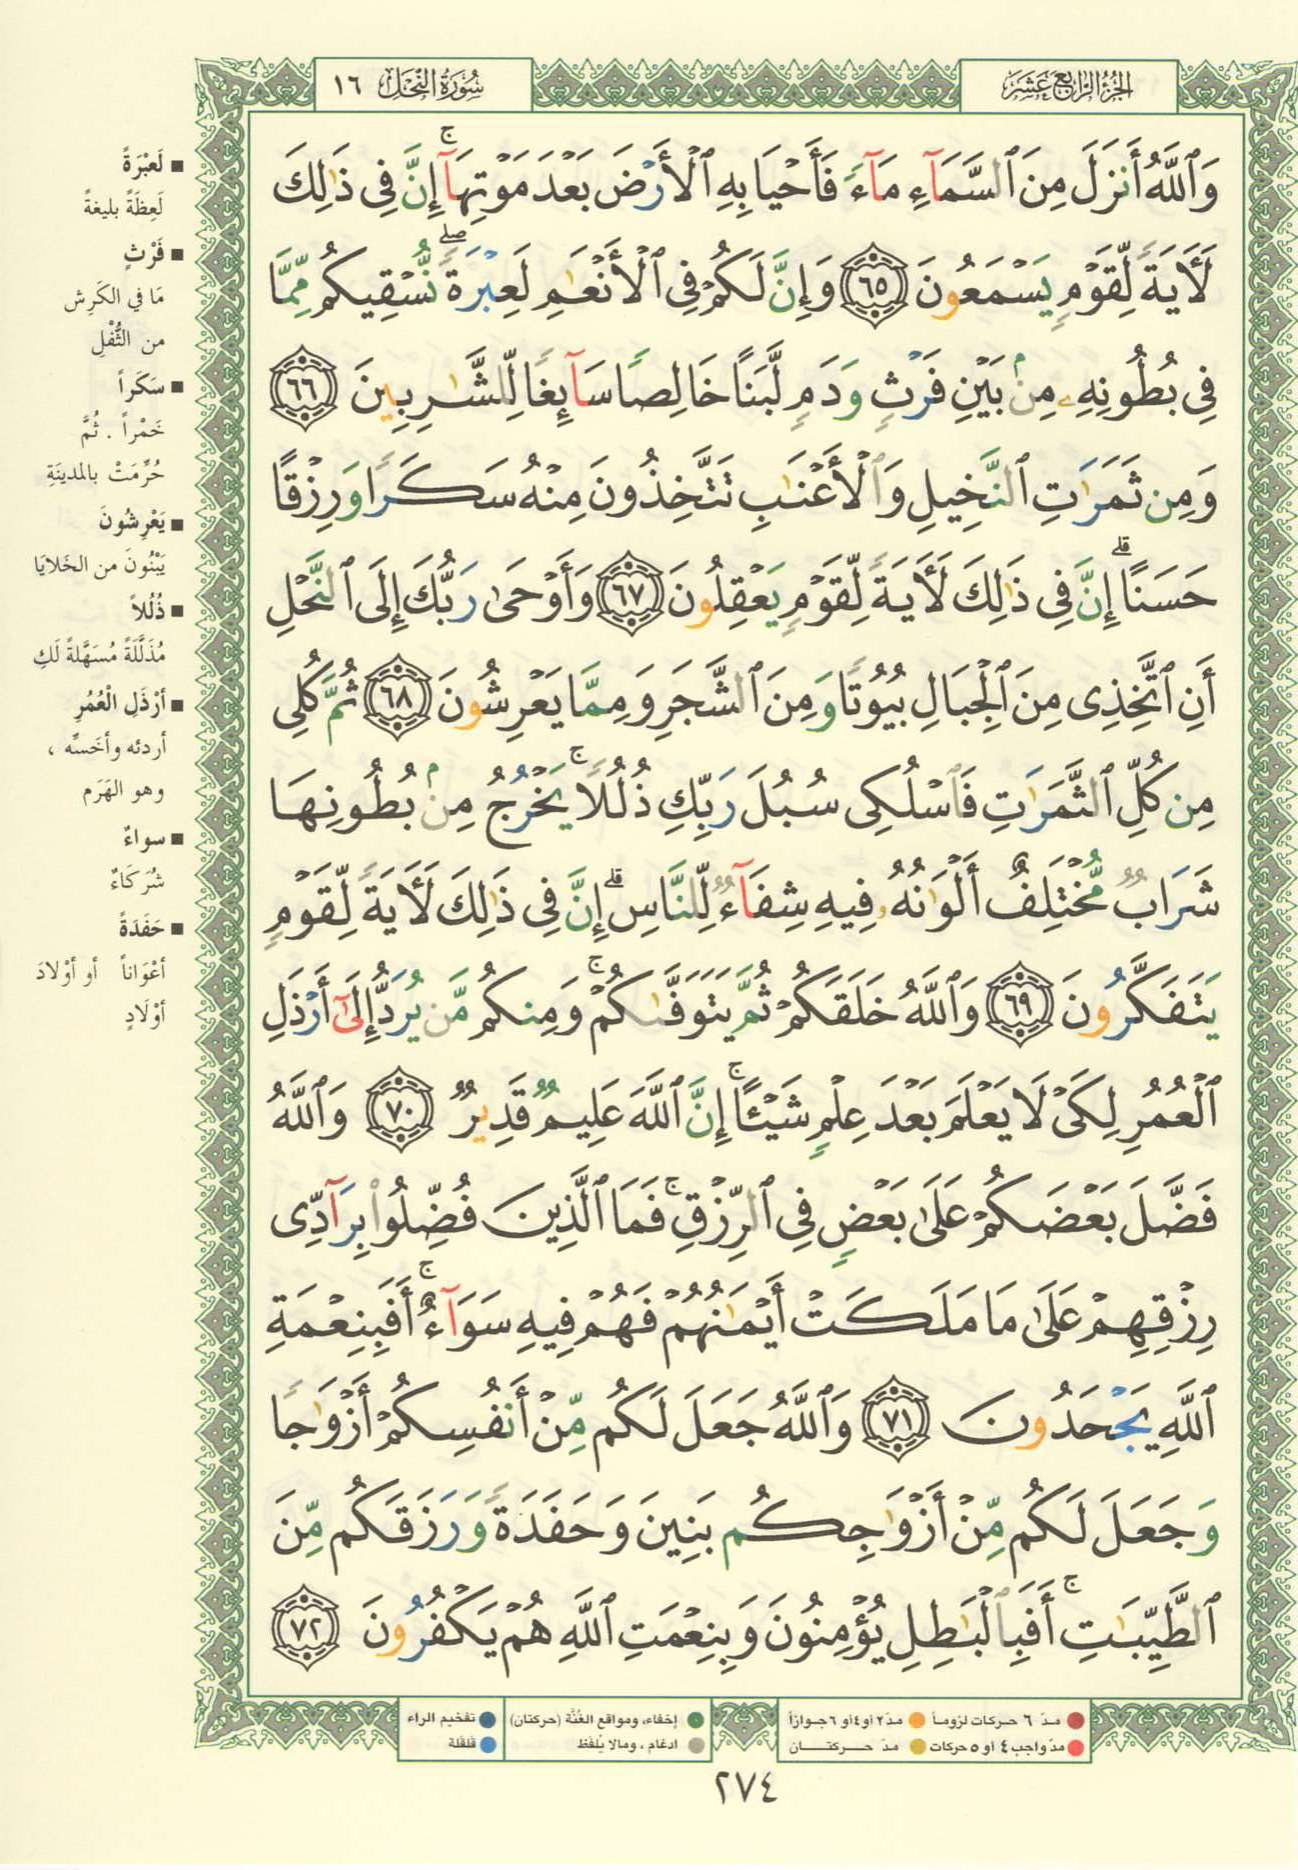 الجزء الرابع عشر
سورة النحل ١٦
وَٱللَّهُ أَنزَلَ مِنَ ٱلسَّمَآءِ مَآءً فَأَحْيَا بِهِ ٱلْأَرْضَ بَعْدَ مَوْتِهَآ ۚ إِنَّ فِى ذَٰلِكَ
لَءَايَةً لِّقَوْمٍ يَسْمَعُونَ ٦٥ وَإِنَّ لَكُمْ فِى ٱلْأَنْعَٰمِ لَعِبْرَةً ۖ نُّسْقِيكُم مِّمَّا
فِى بُطُونِهِۦ مِنۢ بَيْنِ فَرْثٍ وَدَمٍ لَّبَنًا خَالِصًا سَآئِغًا لِّلشَّٰرِبِينَ ٦٦
وَمِن ثَمَرَٰتِ ٱلنَّخِيلِ وَٱلْأَعْنَٰبِ تَتَّخِذُونَ مِنْهُ سَكَرًا وَرِزْقًا
حَسَنًا ۗ إِنَّ فِى ذَٰلِكَ لَءَايَةً لِّقَوْمٍ يَعْقِلُونَ ٦٧ وَأَوْحَىٰ رَبُّكَ إِلَى ٱلنَّحْلِ
أَنِ ٱتَّخِذِى مِنَ ٱلْجِبَالِ بُيُوتًا وَمِنَ ٱلشَّجَرِ وَمِمَّا يَعْرِشُونَ ٦٨ ثُمَّ كُلِى
مِن كُلِّ ٱلثَّمَرَٰتِ فَٱسْلُكِى سُبُلَ رَبِّكِ ذُلُلًا ۚ يَخْرُجُ مِنۢ بُطُونِهَا
شَرَابٌ مُّخْتَلِفٌ أَلْوَٰنُهُۥ فِيهِ شِفَآءٌ لِّلنَّاسِ ۗ إِنَّ فِى ذَٰلِكَ لَءَايَةً لِّقَوْمٍ
يَتَفَكَّرُونَ ٦٩ وَٱللَّهُ خَلَقَكُمْ ثُمَّ يَتَوَفَّىٰكُمْ ۚ وَمِنكُم مَّن يُرَدُّ إِلَىٰٓ أَرْذَلِ
ٱلْعُمُرِ لِكَىْ لَا يَعْلَمَ بَعْدَ عِلْمٍ شَيْـًٔا ۚ إِنَّ ٱللَّهَ عَلِيمٌ قَدِيرٌ ٧٠ وَٱللَّهُ
فَضَّلَ بَعْضَكُمْ عَلَىٰ بَعْضٍ فِى ٱلرِّزْقِ ۚ فَمَا ٱلَّذِينَ فُضِّلُوا۟ بِرَآدِّى
رِزْقِهِمْ عَلَىٰ مَا مَلَكَتْ أَيْمَٰنُهُمْ فَهُمْ فِيهِ سَوَآءٌ ۚ أَفَبِنِعْمَةِ
ٱللَّهِ يَجْحَدُونَ ٧١ وَٱللَّهُ جَعَلَ لَكُم مِّنْ أَنفُسِكُمْ أَزْوَٰجًا
وَجَعَلَ لَكُم مِّنْ أَزْوَٰجِكُم بَنِينَ وَحَفَدَةً وَرَزَقَكُم مِّنَ
ٱلطَّيِّبَٰتِ ۚ أَفَبِٱلْبَٰطِلِ يُؤْمِنُونَ وَبِنِعْمَتِ ٱللَّهِ هُمْ يَكْفُرُونَ ٧٢
■ لَعِبْرَةً
لَعِظَةً بليغةً
■ فَرْثٍ
مَا في الكَرِش
من الثُّفْلِ
■ سَكَراً
خَمْراً . ثُمَّ
حُرِّمَتْ بالمدينَةِ
■ يَعْرِشُونَ
يَبْنُونَ من الخَلايَا
■ ذُلُلاً
مُذَلَّلَةً مُسَهَّلةً لَكِ
■ أرْذَلِ الْعُمُرِ
أردئه وأخَسِّه ،
وهو الهَرَم
■ سواءٌ
شُرَكَاءٌ
■ حَفَدَةً
أعْوَاناً أو أوْلادَ
أوْلَادٍ
مدّ ٦ حركات لزوماً مدّ ٢ أو ٤ أو ٦ جوازاً
مدّ واجب ٤ أو ٥ حركات مدّ حركتان
إخفاء، ومواقع الغُنَّة (حركتان)
ادغام ، ومالا يُلفَظ
تفخيم الراء
قلقلة
٢٧٤